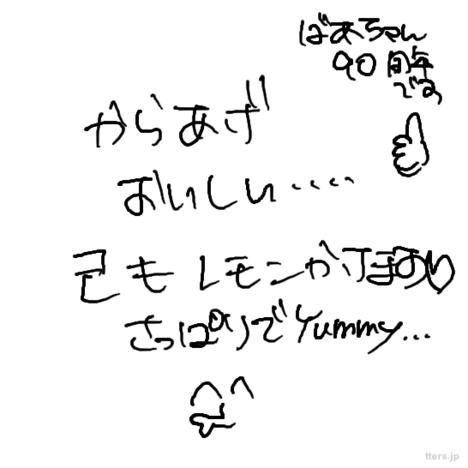 ばあちゃん
90周年
です
からあげ
おいしい‥‥
モモレモンかけほおり♡
さっぱりでYummy...
tters.jp